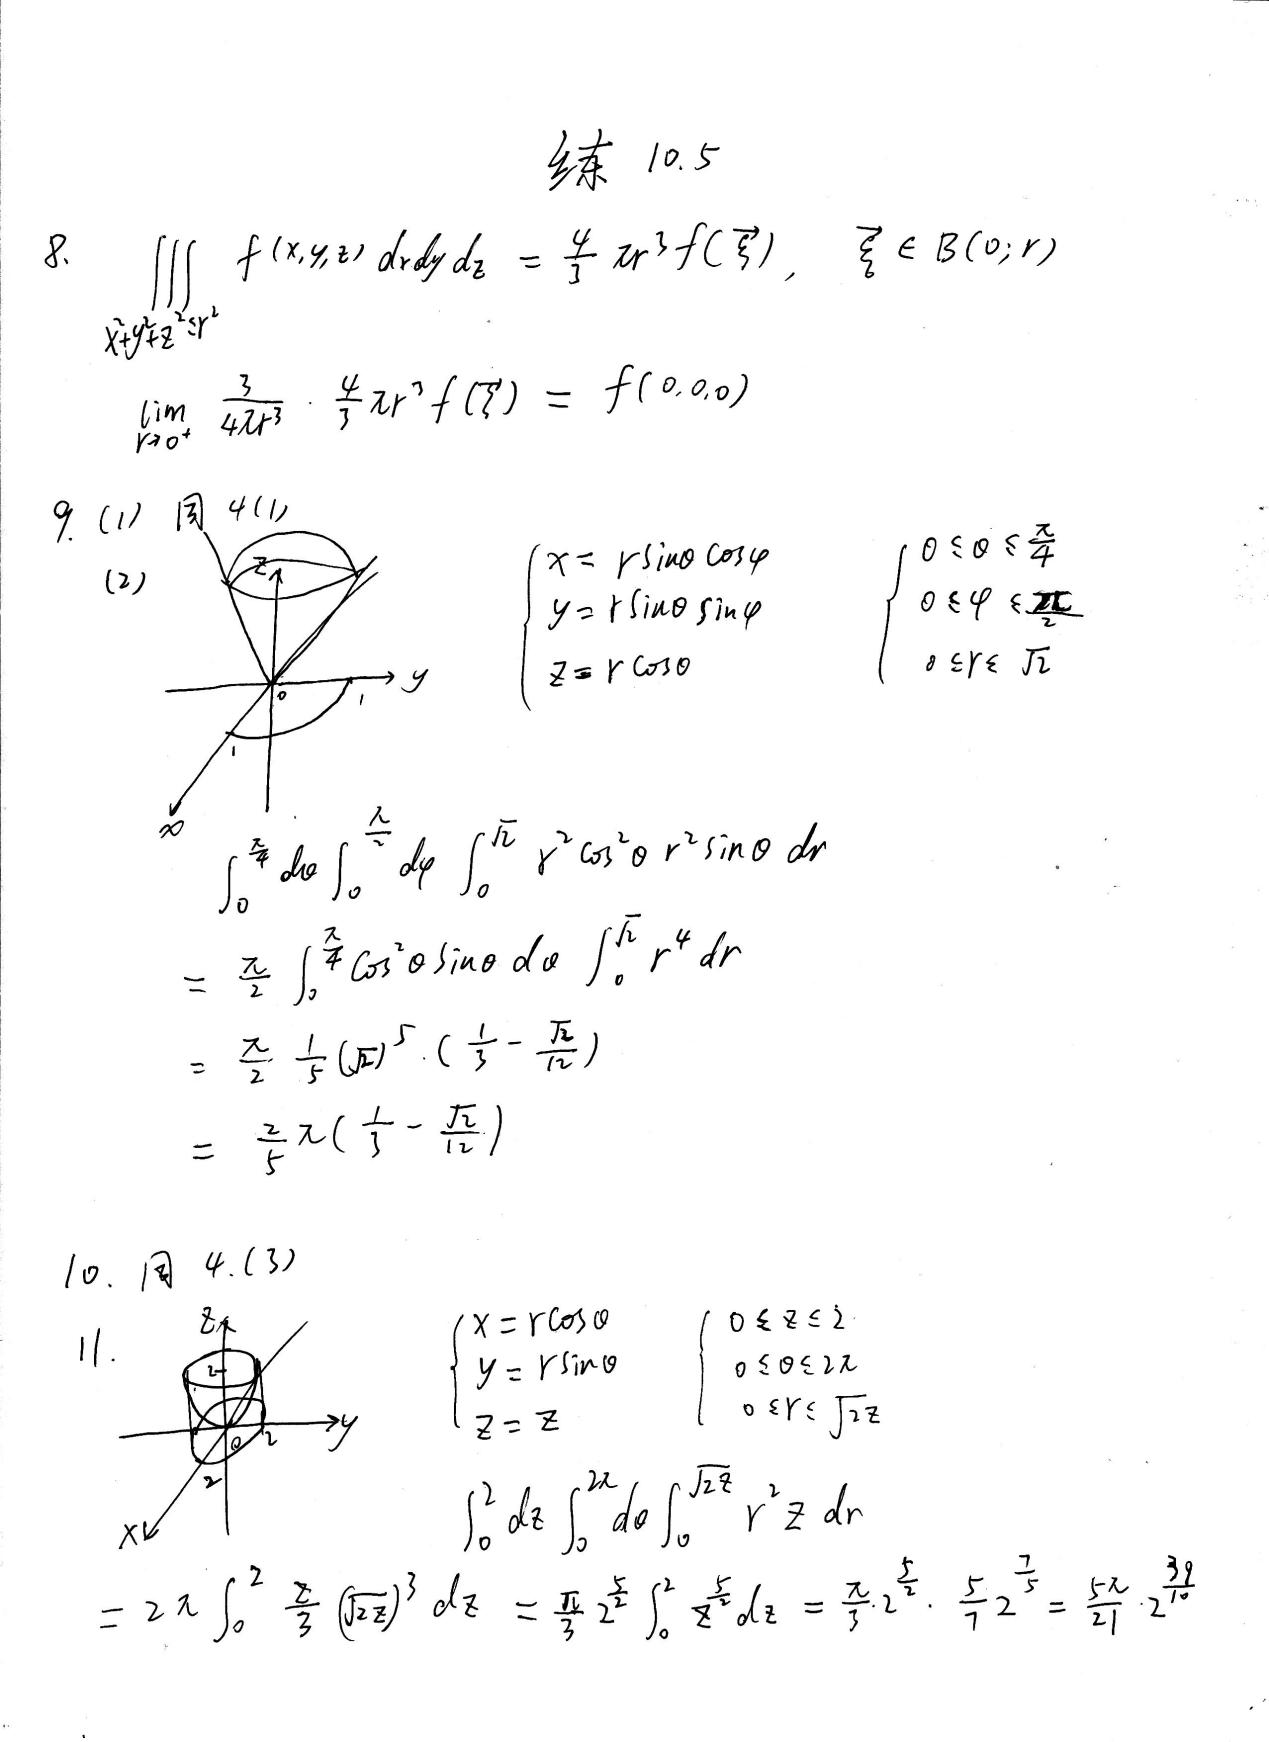 练 10.5
8. ∭_{x²+y²+z²≤r²} f(x,y,z) dxdydz = 4/3 πr³ f(ξ⃗), ξ⃗ ∈ B(0;r)
lim_{r→0⁺} 3/(4πr³) · 4/3 πr³ f(ξ⃗) = f(0,0,0)
9. (1) 同 4(1)
(2)
z
y
x
0
1
1
{ x = r sinθ cosφ
y = r sinθ sinφ
z = r cosθ
{ 0 ≤ θ ≤ π/4
0 ≤ φ ≤ π/2
0 ≤ r ≤ √2
∫₀^{π/4} dθ ∫₀^{π/2} dφ ∫₀^{√2} r² cos²θ r² sinθ dr
= π/2 ∫₀^{π/4} cos²θ sinθ dθ ∫₀^{√2} r⁴ dr
= π/2 · 1/5 (√2)⁵ · (1/3 - √2/12)
= 2/5 π (1/3 - √2/12)
10. 同 4.(3)
11.
z
2
y
0
2
2
x
{ x = r cosθ
y = r sinθ
z = z
{ 0 ≤ z ≤ 2
0 ≤ θ ≤ 2π
0 ≤ r ≤ √2z
∫₀² dz ∫₀^{2π} dθ ∫₀^{√2z} r² z dr
= 2π ∫₀² z/3 (√2z)³ dz = π/3 2^{5/2} ∫₀² z^{5/2} dz = π/3 · 2^{5/2} · 5/7 2^{7/5} = 5π/21 · 2^{39/10}